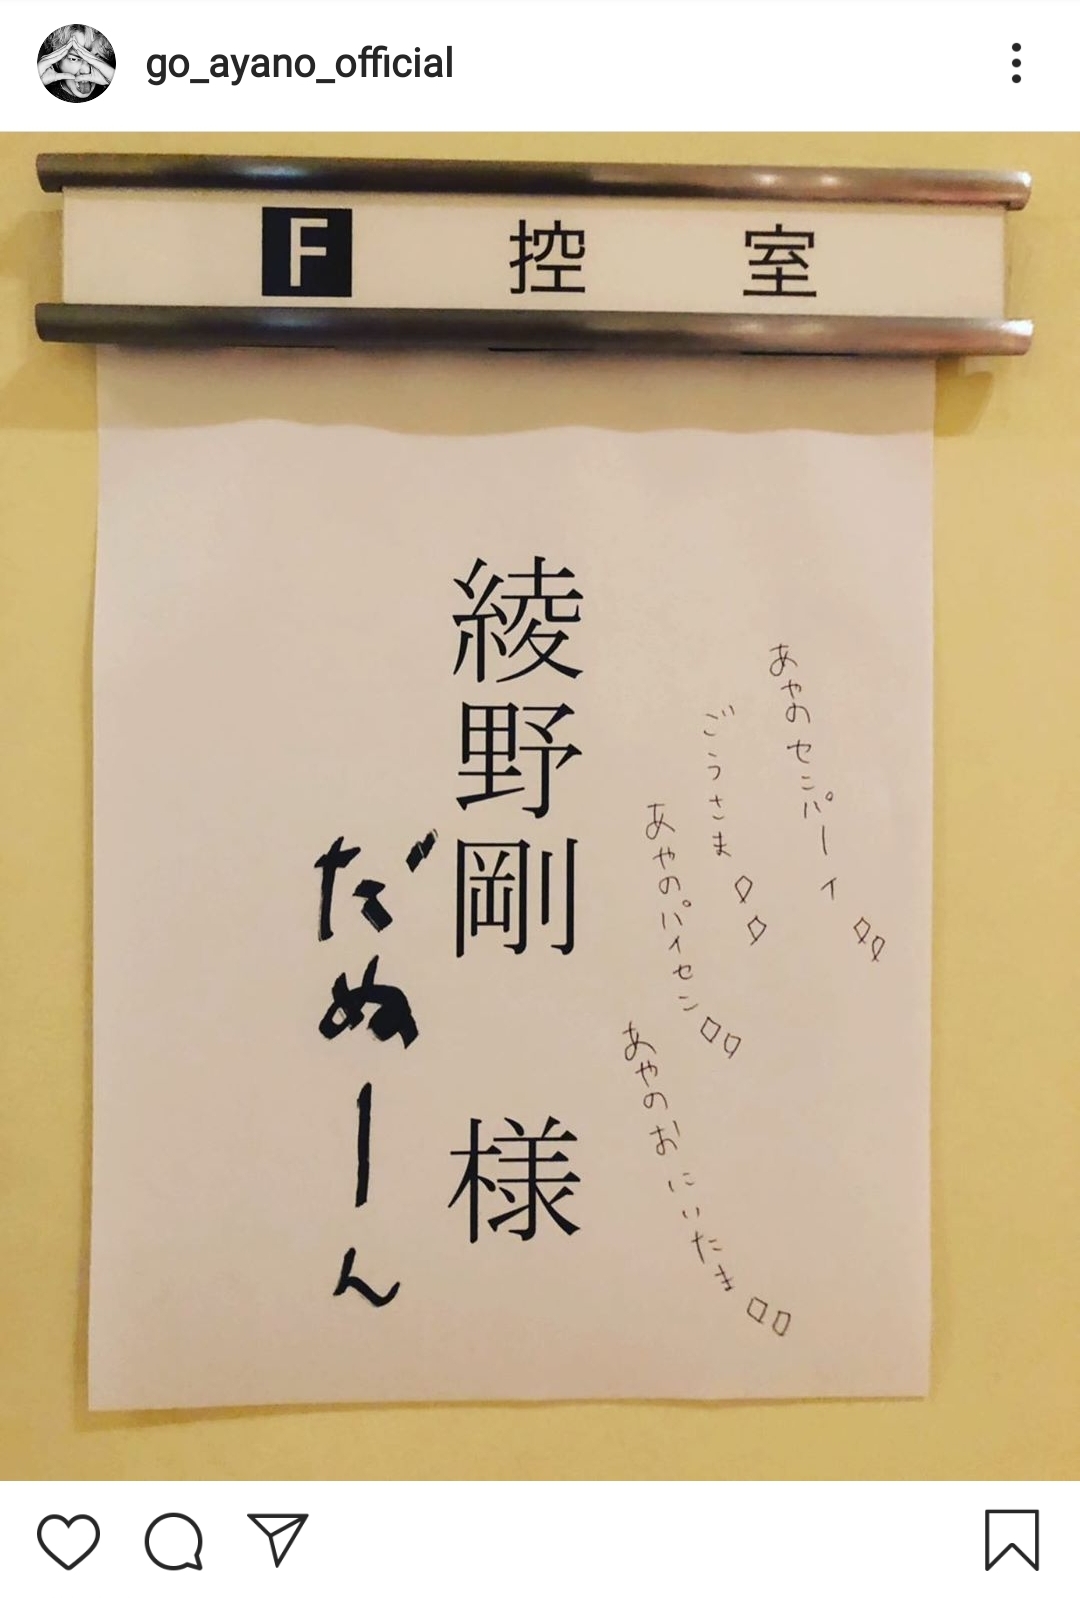 go_ayano_official
F 控室
あやのセンパーイ
ごうさま
あやのパイセン
あやのおにいたま
綾野剛 様
だぬーん